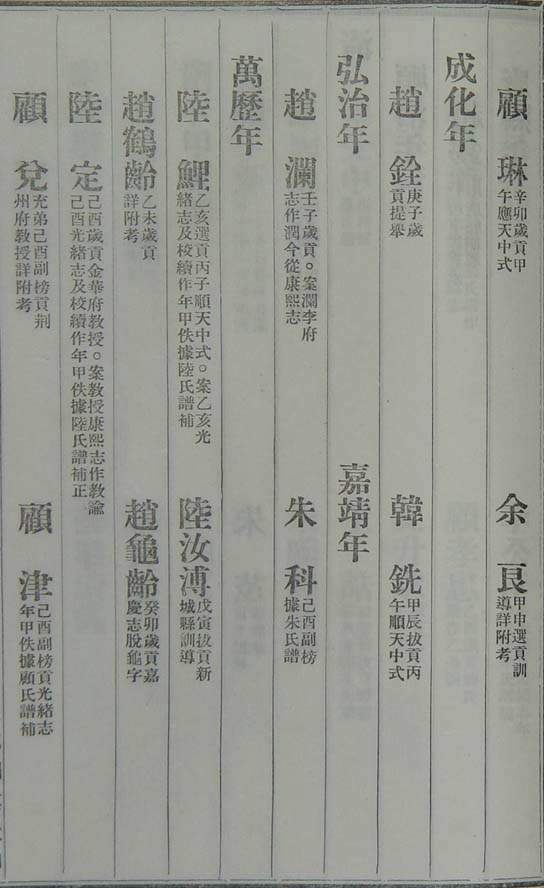 顧琳辛卯歲貢甲午應天中式
余艮甲申選貢訓導詳附考
成化年
趙銓庚子歲貢提舉
韓銑甲辰拔貢丙午順天中式
弘治年
嘉靖年
趙瀾壬子歲貢○案瀾李府志作潤今從康熙志
朱科己酉副榜據朱氏譜
萬歷年
陸鯉乙亥選貢丙子順天中式○案乙亥光緒志及校續作年甲佚據陸氏譜補
陸汝溥戊寅拔貢新城縣訓導
趙鶴齡乙未歲貢詳附考
趙龜齡癸卯歲貢嘉慶志脫龜字
陸定己酉歲貢金華府教授○案教授康熙志作教諭己酉光緒志及校續作年甲佚據陸氏譜補正
顧兊充弟己酉副榜貢荆州府教授詳附考
顧津己酉副榜貢光緒志年甲佚據顧氏譜補